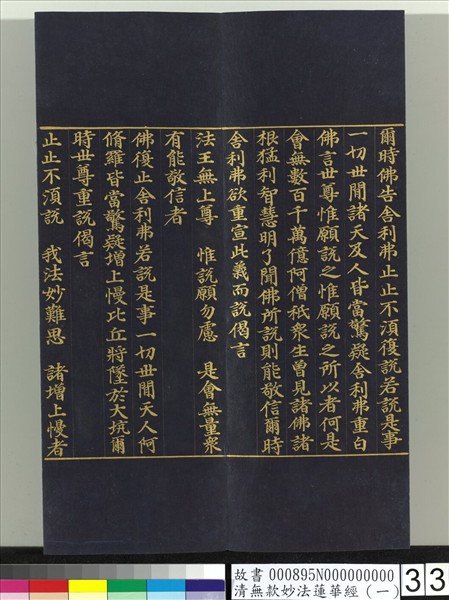 爾時佛告舍利弗止止不湏復說若說是事
一切世間諸天及人皆當驚疑舍利弗重白
佛言世尊惟願說之惟願說之所以者何是
會無數百千萬億阿僧祇衆生曾見諸佛諸
根猛利智慧明了聞佛所說則能敬信爾時
舍利弗欲重宣此義而說偈言
法王無上尊　惟說願勿慮　是會無量衆
有能敬信者
佛復止舍利弗若說是事一切世間天人阿
脩羅皆當驚疑增上慢比丘將墜於大坑爾
時世尊重說偈言
止止不湏說　我法妙難思　諸增上慢者
故書 000895N000000000
清無款妙法蓮華經（一）
33